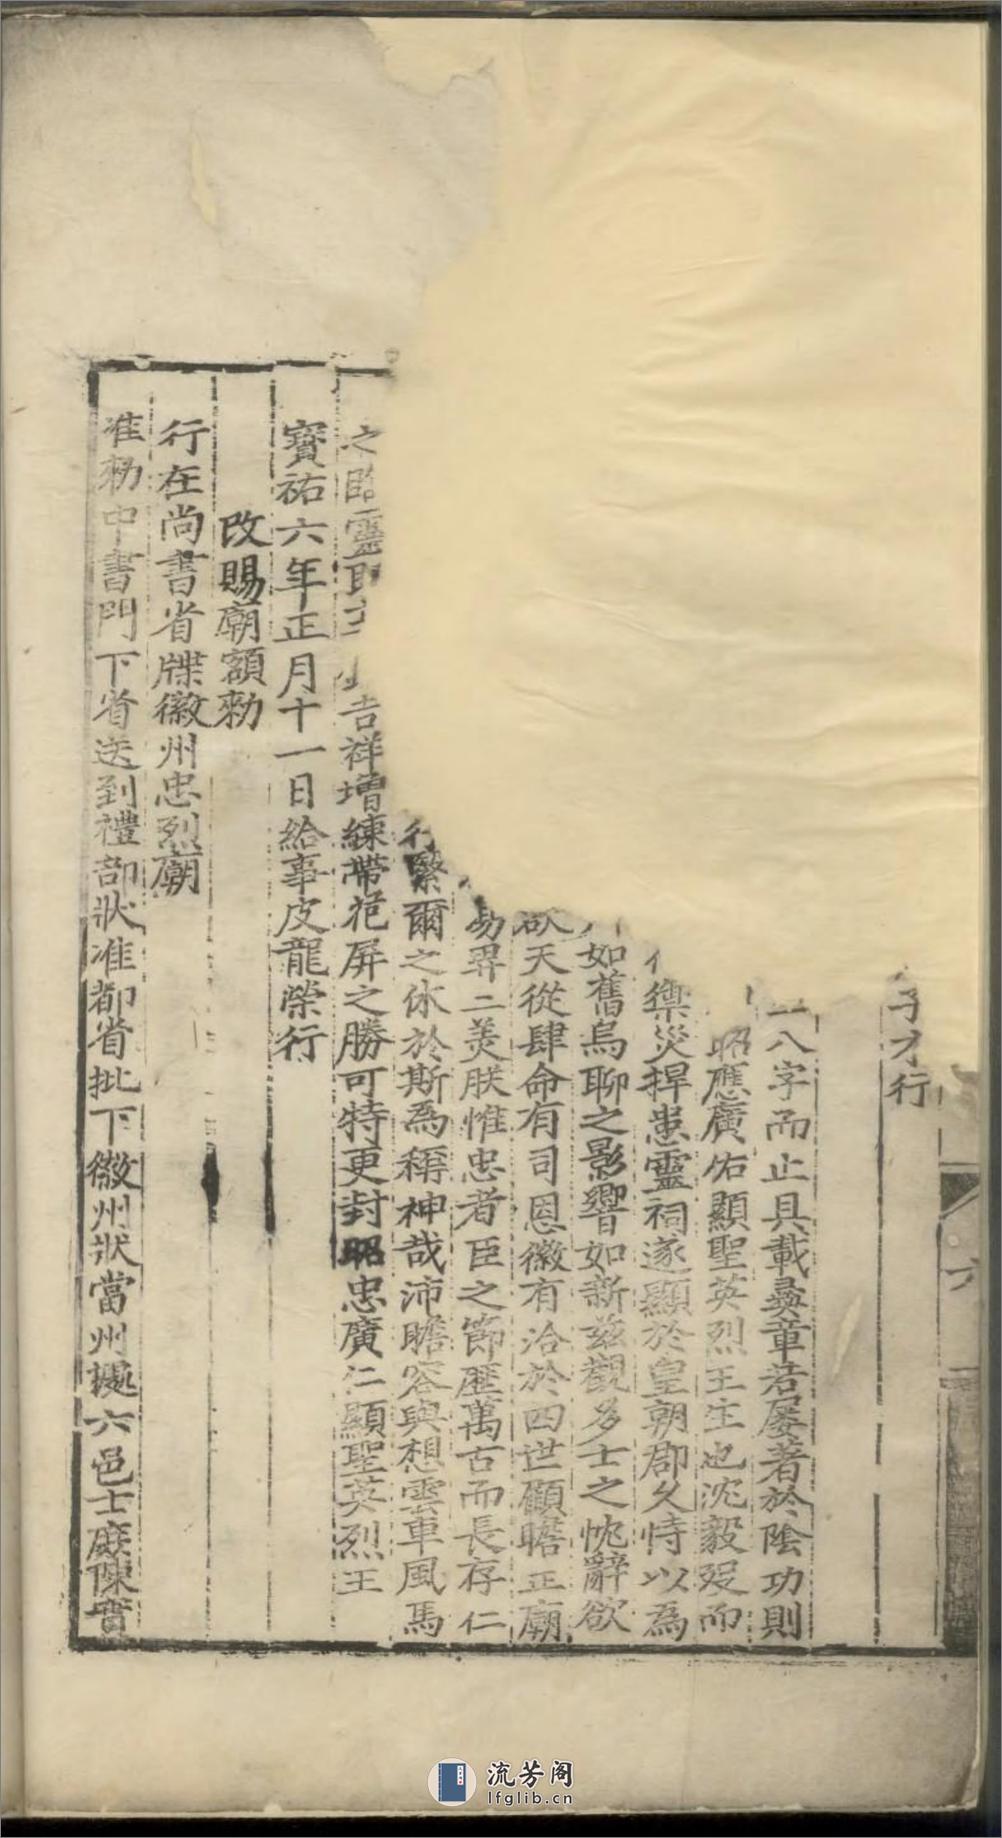 子才行
八字而止具載彝章若屡著於陰功則
昭應廣佑顯聖英烈王生也沈毅殁而
禦災捍患靈祠遂顯於皇朝郡乆恃以爲
如舊烏聊之影響如新兹觀多士之忱辭欲
欲天從肆命有司恩徽有洽於四世顧瞻正廟
易畀二美朕惟忠者臣之節歴萬古而長存仁
行繄爾之休於斯爲稱神哉沛瞻容與想雲車風馬
之臨靈 吉祥增練帶花屏之勝可特更封昭忠廣仁顯聖英烈王
寶祐六年正月十一日給事皮龍榮行
改賜廟額勑
行在尚書省牒徽州忠烈廟
准勑中書門下省送到禮部狀准都省批下徽州狀當州據六邑士庶陳實
六
流芳阁
lfglib.cn